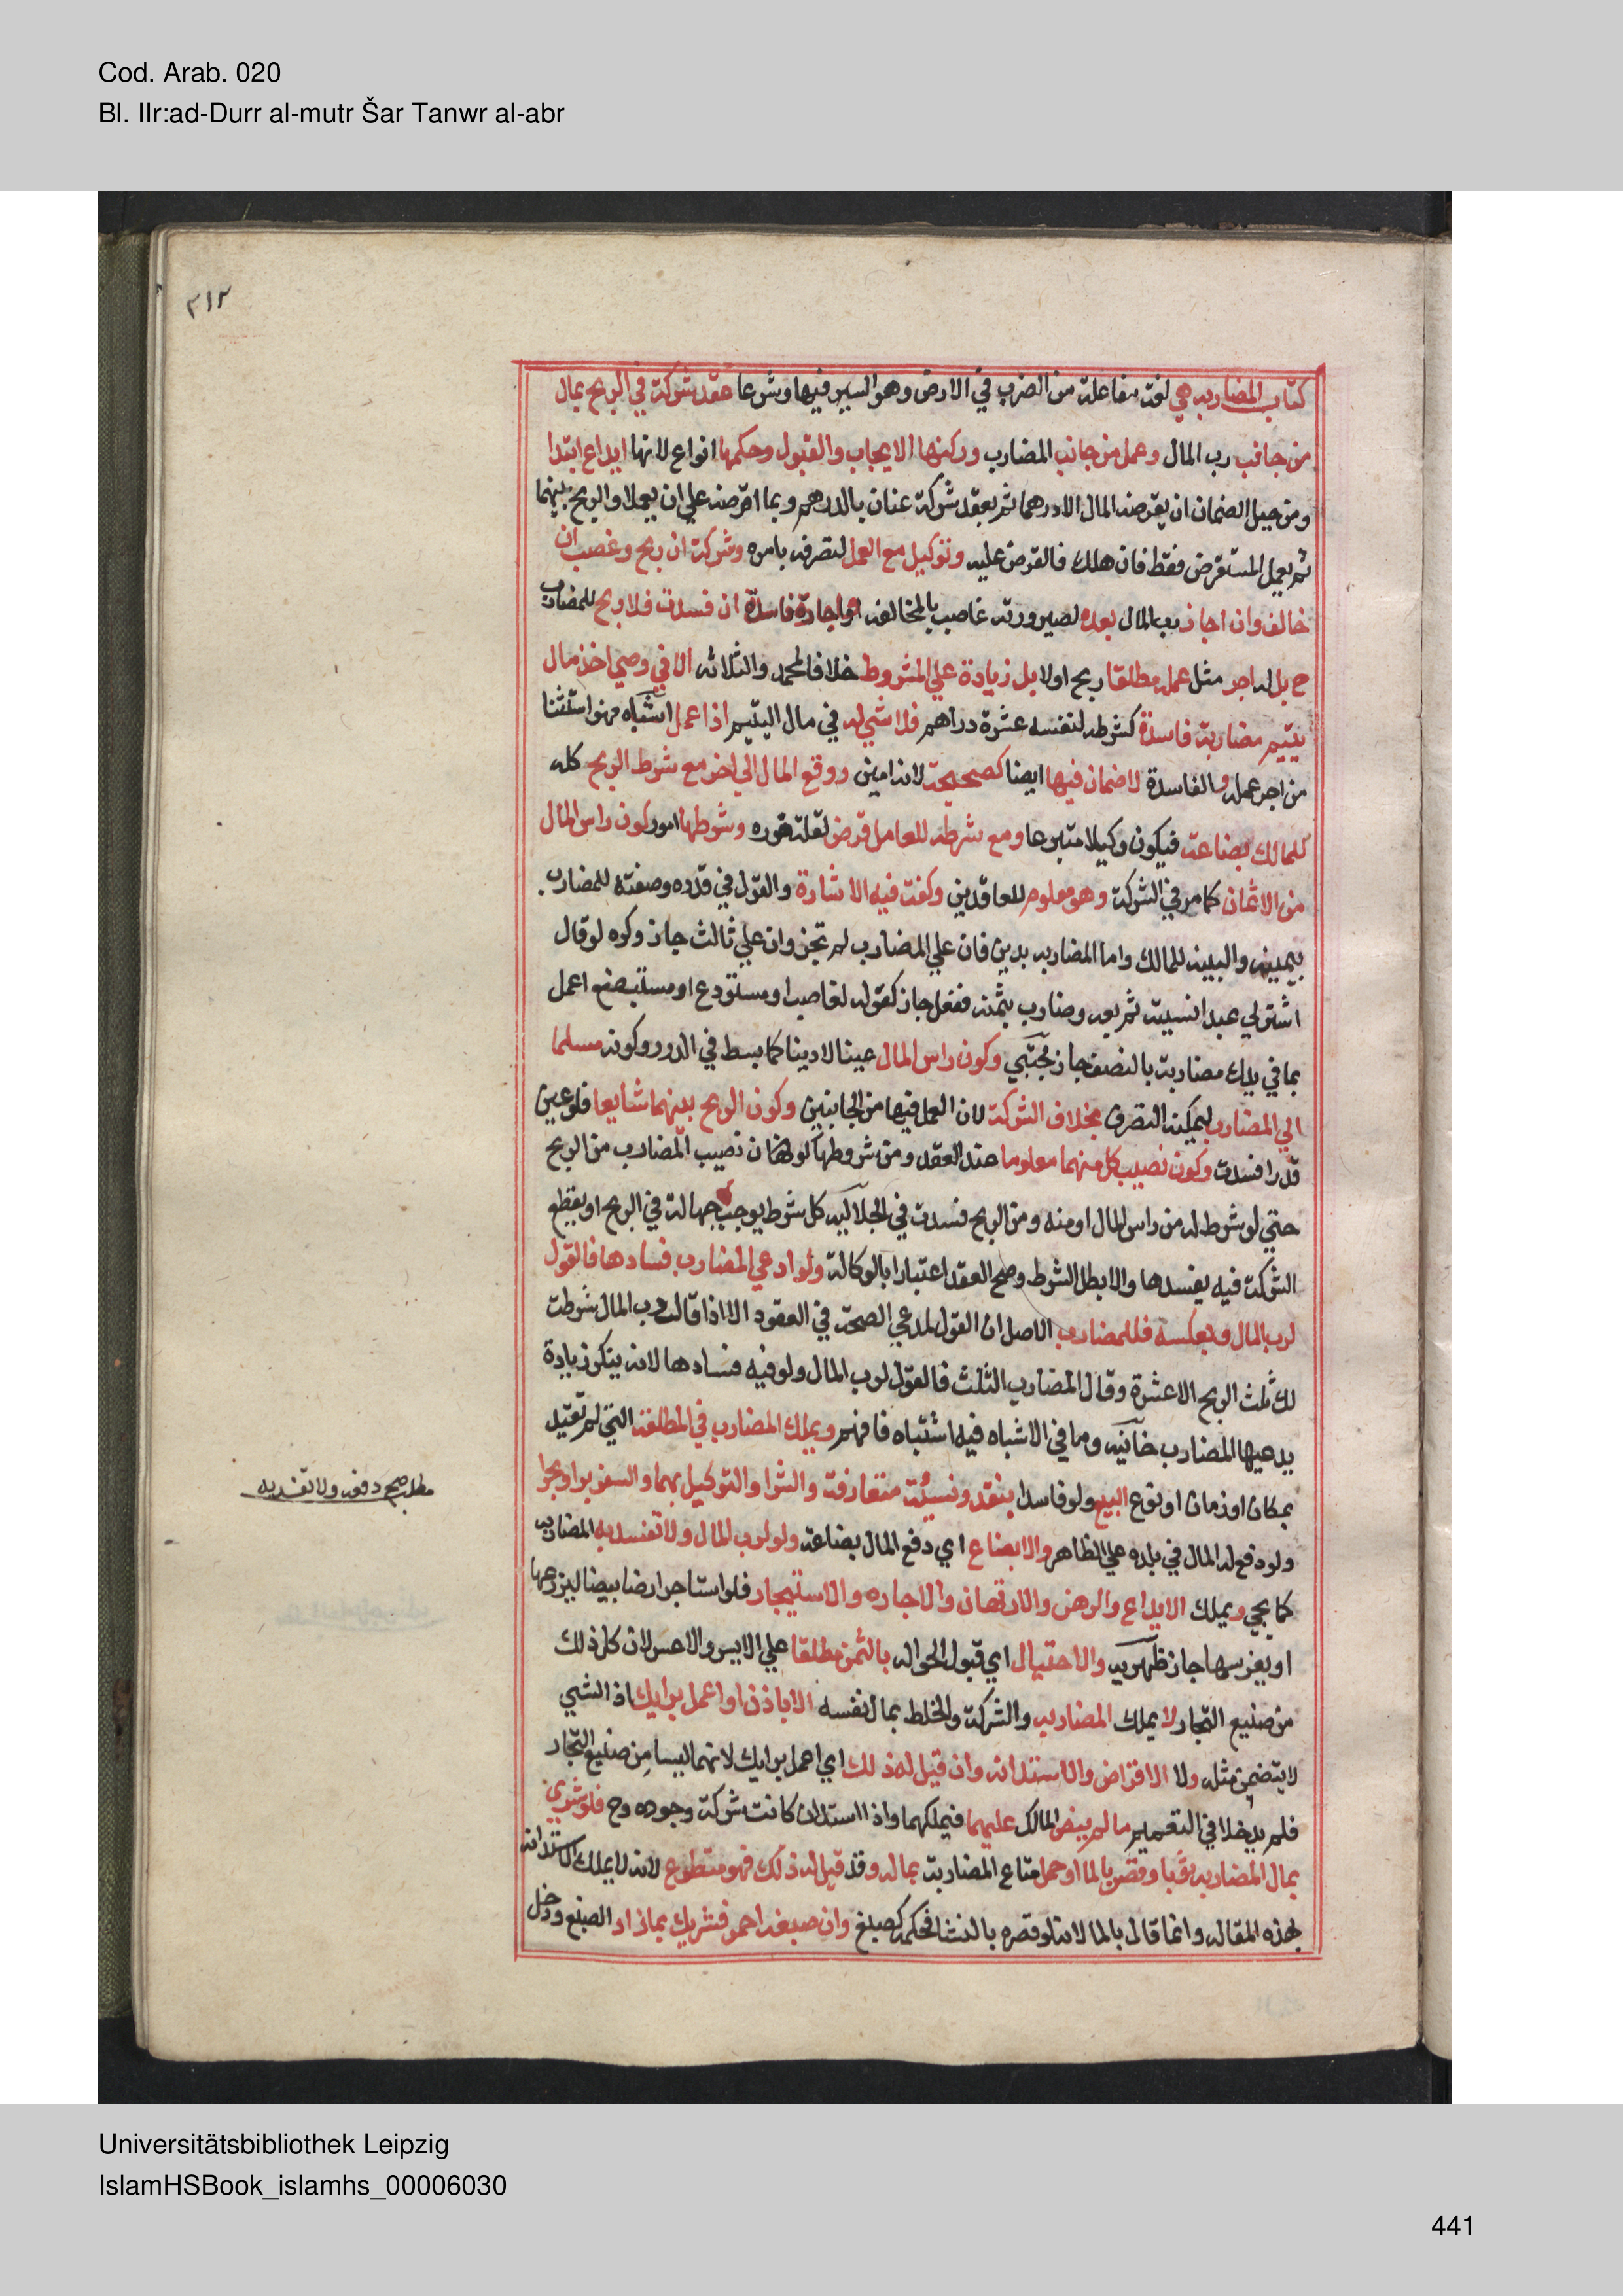 Cod. Arab. 020
Bl. IIr:ad-Durr al-mutr Šar Tanwr al-abr
٣١٢
كتاب المضاربه هي لغة مفاعلة من الضرب في الارض وهو السير فيها وشرعا عقد شركة في الربح بمال
من جانب رب المال وعمل من جانب المضارب وركنها الايجاب والقبول وحكمها انواع لانها ايداع ابتدا
ومن حيل الضمان ان يقرضه المال الا درهما ثم يعقد شركة عنان بالدرهم وبما اقرضه علي ان يعملا والربح بينهما
ثم يعمل المستقرض فقط فان هلك فالقرض عليه وتوكيل مع العمل لتصرفه بامره وشركة ان ربح وغصب ان
خالف وان اجاز رب المال بعده لصيرورته غاصب بالمخالفه واجارة فاسدة ان فسدت فلا ربح للمضارب
ح بل له اجر مثل عمله مطلقا ربح اولا بل زيادة علي المشروط خلافا لمحمد والثلاثه الا في وصي اخذ مال
يتيم مضاربة فاسدة كشرطه لنفسه عشرة دراهم فلا شي له في مال اليتيم اذا عمل اشباه فهو استثنا
من اجر عمله والفاسدة لا ضمان فيها ايضا كصحيحة لانه امين ودفع المال الي اخر مع شرط الربح كله
للمالك بضاعة فيكون وكيلا متبرعا ومع شرطه للعامل قرض لقلة ضرره وشرطها امور كون راس المال
من الاثمان كما مر في الشركة وهو معلوم للعاقدين وكفت فيه الاشارة والقول في قدره وصفته للمضارب
بيمينه والبينه للمالك واما المضاربه بدين فان علي المضارب لم تجز وان علي ثالث جاز وكره لو قال
اشتر لي عبدا نسية ثم بعه وضارب بثمنه ففعل جاز كقوله لغاصب او مستودع او مستبضع اعمل
بما في يدك مضاربة بالنصف جاز مجتبي وكون راس المال عينا لا دينا كما بسط في الدرر وكونه مسلما
الي المضارب ليمكنه التصرف بخلاف الشركة لان العمل فيها من الجانبين وكون الربح بينهما شايعا فلو عين
قدرا فسدت وكون نصيب كل منهما معلوما عند العقد ومن شروطها كون نصيب المضارب من الربح
حتي لو شرط له من راس المال او منه ومن الربح فسدت في الجلاليه كل شرط يوجب جهالة في الربح او يقطع
الشركة فيه يفسدها والا بطل الشرط وصح العقد اعتبارا بالوكالة ولو ادعي المضارب فسادها فالقول
لرب المال وبعكسه فللمضارب الاصل ان القول لمدعي الصحة في العقود الا اذا قال رب المال شرطت
لك ثلث الربح الا عشرة وقال المضارب الثلث فالقول لرب المال ولو فيه فسادها لانه ينكر زيادة
يدعيها المضارب خانيه وما في الاشباه فيه اشتباه فافهم ويملك المضارب في المطلقة التي لم تقيد
بمكان او زمان او نوع البيع ولو فاسدا بنقد ونسيئة متعارفة والشرا والتوكيل بهما والسفر برا وبحرا
ولو دفع له المال في بلده علي الظاهر والابضاع اي دفع المال بضاعة ولو لرب المال ولا تفسد به المضاربه
كما يجي ويملك الايداع والرهن والارتهان والاجاره والاستيجار فلو استاجر ارضا بيضا ليزرعها
او يغرسها جاز ظهيريه والاحتيال اي قبول الحواله بالثمن مطلقا علي الايسر والاعسر لان كل ذلك
من صنيع التجار لا يملك المضاربه والشركة والخلط بمال نفسه الا باذن او اعمل برايك اذ الشي
لا يتضمن مثله ولا الاقراض والاستدانه وان قيل له ذلك اي اعمل برايك لانهما ليسا من صنيع التجار
فلم يدخلا في التعميم ما لم ينص المالك عليهما فيملكهما واذا استدان كانت شركة وجوه وح فلو شري
بمال المضاربه ثوبا وقصر بالما او حمل متاع المضاربة بماله وقد قيل له ذلك فهو متطوع لانه لا يملك الاستدانه
بهذه المقاله وانما قال بالما لانه لو قصره بالنشا فحكمه كصبغ وان صبغه احمر فشريك بما زاد الصبغ ودخل
مطلب صح دفعه ولا تفسد به
Universitätsbibliothek Leipzig
IslamHSBook_islamhs_00006030
441